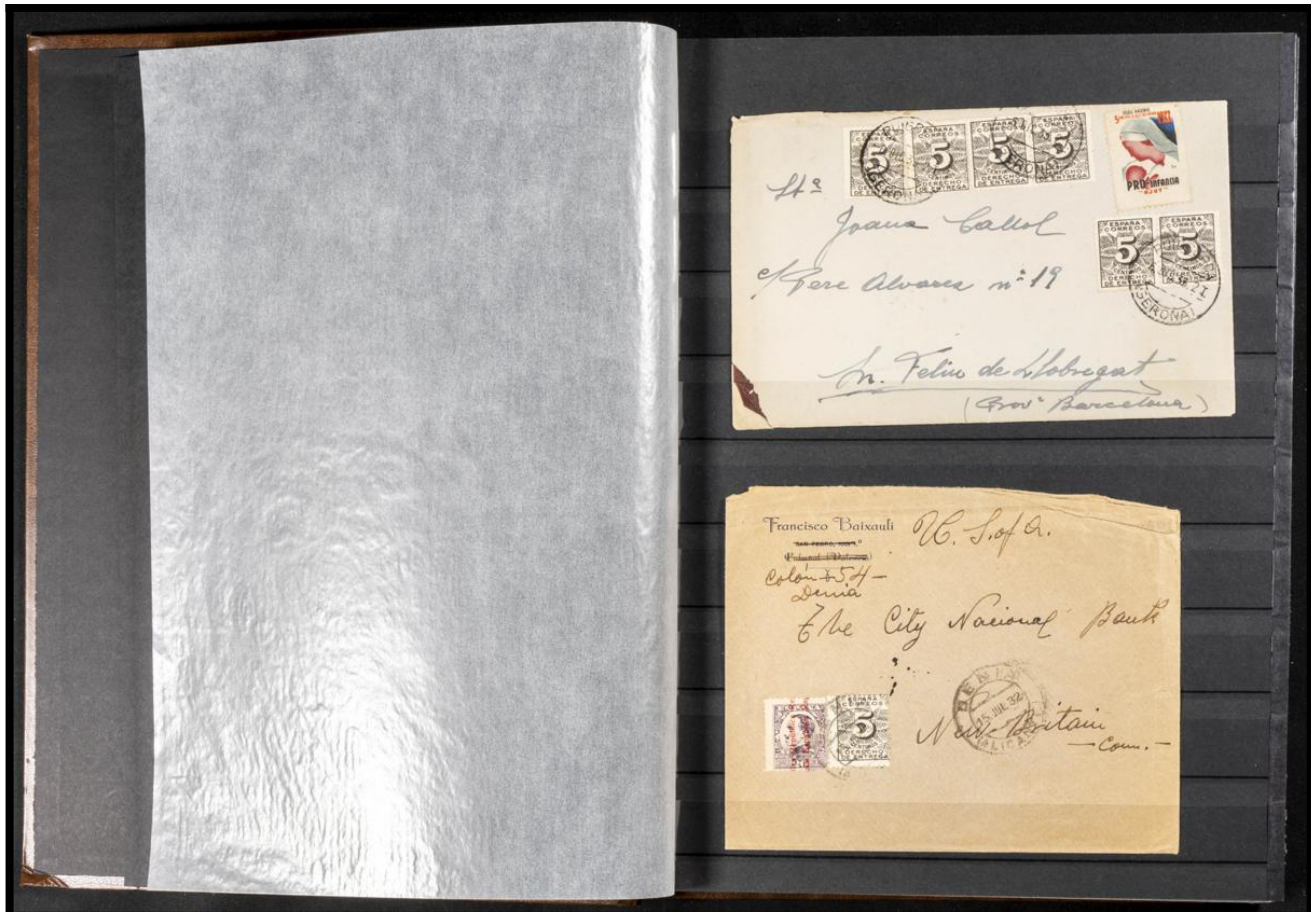 ESPAÑA
CORREOS
5
DERECHO
DE ENTREGA
ESPAÑA
CORREOS
5
DERECHO
DE ENTREGA
ESPAÑA
CORREOS
5
DERECHO
DE ENTREGA
ESPAÑA
CORREOS
5
DERECHO
DE ENTREGA
(GERONA)
PRO INFANCIA
Sta
Joana Callol
c/ Pere Alvares nº 19
ESPAÑA
CORREOS
5
DERECHO
DE ENTREGA
ESPAÑA
CORREOS
5
DERECHO
(GERONA)
Sn. Feliu de Llobregat
(Provª Barcelona)
Francisco Baixauli
U. S. of A.
Colón 54 -
Denia
The City Nacional Bank
DENIA
15 JUL 32
New Britain
- Conn. -
ESPAÑA
CORREOS
5
DERECHO
DE ENTREGA